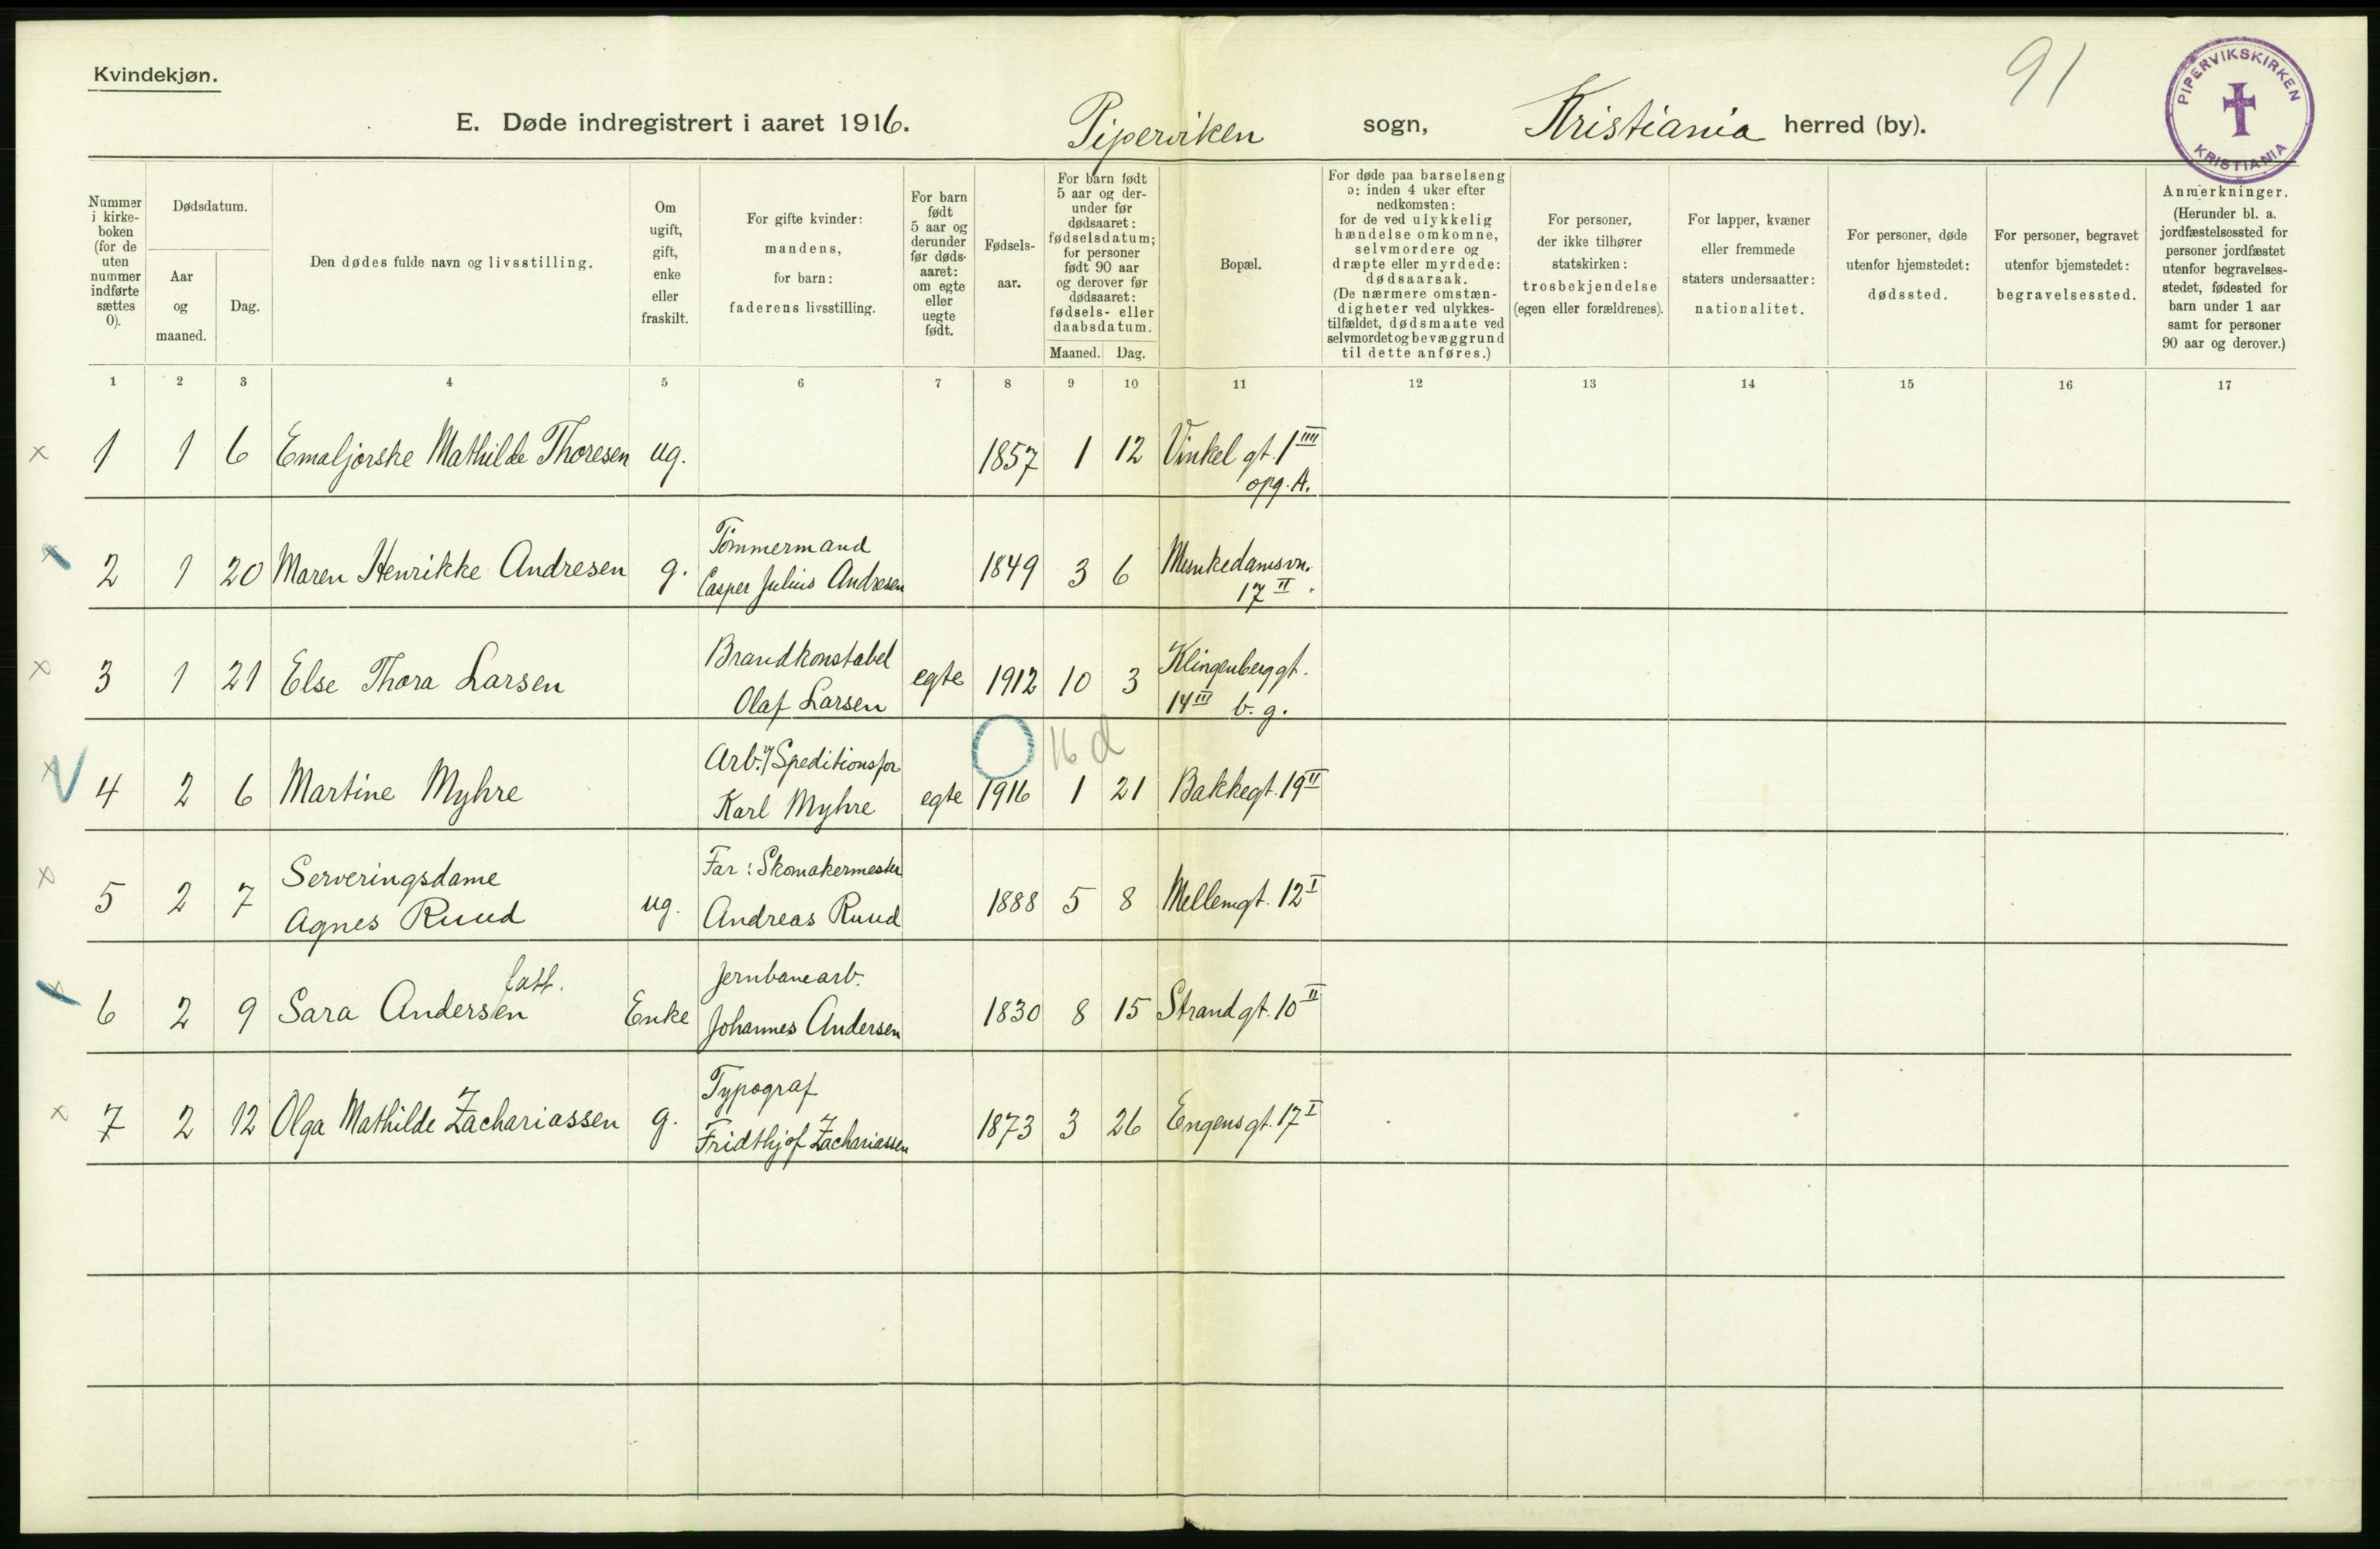 Kvindekjøn.
91
PIPERVIKSKIRKEN
KRISTIANIA
E. Døde indregistrert i aaret 1916. Piperviken sogn, Kristiania herred (by).
Nummer
i kirke-
boken
(for de
uten
nummer
indførte
sættes
0).
Dødsdatum.
Aar
og
maaned.
Dag.
Den dødes fulde navn og livsstilling.
Om
ugift,
gift,
enke
eller
fraskilt.
For gifte kvinder:
mandens,
for barn:
faderens livsstilling.
For barn
født
5 aar og
derunder
før døds-
aaret:
om egte
eller
uegte
født.
Fødsels-
aar.
For barn født
5 aar og der-
under før
dødsaaret:
fødselsdatum;
for personer
født 90 aar
og derover før
dødsaaret:
fødsels- eller
daabsdatum.
Maaned. Dag.
Bopæl.
For døde paa barselseng
ɔ: inden 4 uker efter
nedkomsten:
for de ved ulykkelig
hændelse omkomne,
selvmordere og
dræpte eller myrdede:
dødsaarsak.
(De nærmere omstæn-
digheter ved ulykkes-
tilfældet, dødsmaate ved
selvmordet og bevæggrund
til dette anføres.)
For personer,
der ikke tilhører
statskirken:
trosbekjendelse
(egen eller forældrenes).
For lapper, kvæner
eller fremmede
staters undersaatter:
nationalitet.
For personer, døde
utenfor hjemstedet:
dødssted.
For personer, begravet
utenfor bjemstedet:
begravelsessted.
Anmerkninger.
(Herunder bl. a.
jordfæstelsessted for
personer jordfæstet
utenfor begravelses-
stedet, fødested for
barn under 1 aar
samt for personer
90 aar og derover.)
1 2 3 4 5 6 7 8 9 10 11 12 13 14 15 16 17
x 1 1 6 Emaljørske Mathilde Thoresen ug. 1857 1 12 Vinkel gt. 1 IIII
opg. A.
Tömmermand
x 2 1 20 Maren Henrikke Andresen g. Casper Julius Andresen 1849 3 6 Munkedamsvn.
17 II.
Brandkonstabel
x 3 1 21 Else Thora Larsen Olaf Larsen egte 1912 10 3 Klingenberggt.
14 III b. g.
16 d
Arb. v/ Speditionsfor
x 4 2 6 Martine Myhre Karl Myhre egte 1916 1 21 Bakkegt. 19 II
Serveringsdame Far: Skomakermester
x 5 2 7 Agnes Ruud ug. Andreas Ruud 1888 5 8 Mellemgt. 12 I
fatt. Jernbanearb.
x 6 2 9 Sara Andersen Enke Johannes Andersen 1830 8 15 Strandgt. 10 II
Typograf
x 7 2 12 Olga Mathilde Zachariassen g. Fridthjof Zachariassen 1873 3 26 Engens gt. 17 I